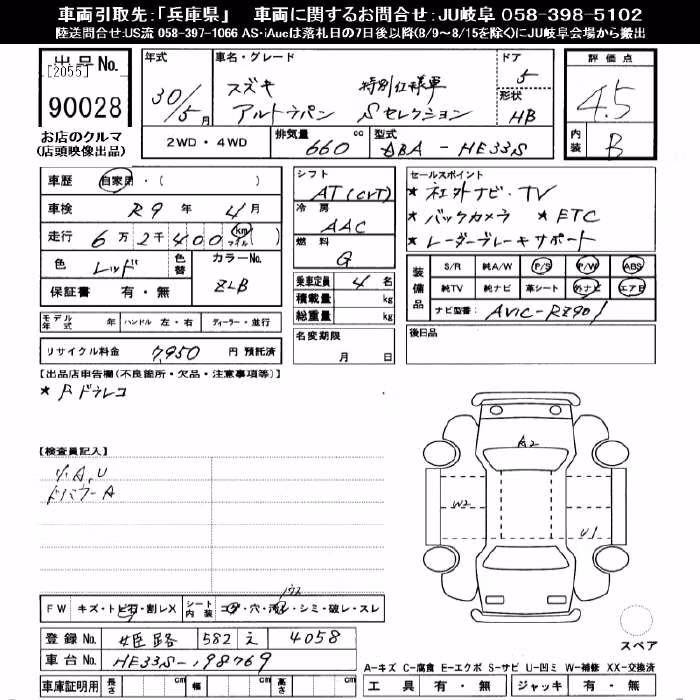 車両引取先：「兵庫県」　車両に関するお問合せ：JU岐阜 058-398-5102
陸送問合せ:US流 058-397-1066 AS・iAucは落札日の7日後以降(8/9～8/15を除く)にJU岐阜会場から搬出
出品No.
[2055]
90028
お店のクルマ
(店頭映像出品)
年式
30/5月
車名・グレード
スズキ　特別仕様車
アルトラパン　Sセレクション
ドア
5
形状
HB
2WD・4WD
排気量
660 cc
型式
DBA-HE33S
評価点
4.5
内装
B
車歴 自家用・( )
車検 R9年 4月
走行 6万2千400 km マイル ( )
色 レッド 色替
カラーNo.
ZLB
保証書 有・無
モデル年式 年 ハンドル 左・右 ディーラー・並行
リサイクル料金 7,950 円 預託済
シフト
AT(CVT)
冷房
AAC
燃料
G
乗車定員 4名
積載量 kg
総重量 kg
名変期限
月 日
セールスポイント
★社外ナビ・TV
★バックカメラ ★ETC
★レーダーブレーキサポート
装備品
S/R 純A/W P/S P/W ABS
純TV 純ナビ 革シート 外ナビ エアB
ナビ型番: AVIC-RZ901
後日品
【出品店申告欄(不良箇所・欠品・注意事項等)】
★Fドラレコ
【検査員記入】
小A,U
ドバフーA
A2
W2
U1
FW キズ・トビ石・割レX
シート内装 コゲ・穴・汚レ・シミ・破レ・スレ
登録No. 姫路 582 え 4058
車台No. HE33S-198769
車庫証明用 長さ cm 幅 cm 高さ cm
スペア
A-キズ C-腐食 E-エクボ S-サビ U-凹ミ W-補修 XX-交換済
工具 有・無 ジャッキ 有・無